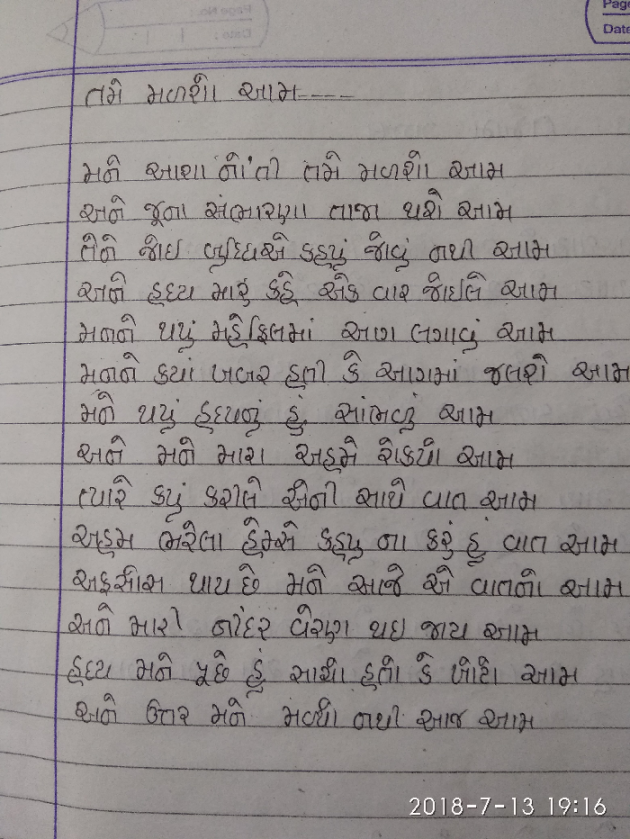 Page
Date
તમે મળશો આમ----
મને આશા નો'તી તમે મળશો આમ
અને જૂના સંભારણા તાજા થશે આમ
તેને જોઇ બુધ્ધિએ કહયું જોવું નથી આમ
અને હ્રદય મારું કહે એક વાર જોઇલે આમ
મનને થયું મહેફિલમાં આગ લગાવું આમ
મનને કયાં ખબર હતી કે આગમાં જલશે આમ
મને થયું હ્રદયનું હું સાંભળું આમ
અને મને મારા અહમે રોકયો આમ
ત્યારે કયું કરીલે એની સાથે વાત આમ
અહમ ભરેલા હેમ્સે કહયુ ના કરું હું વાત આમ
અફસોસ થાય છે મને આજે એ વાતનો આમ
અને મારી નીંદર વેરણ થઇ જાય આમ
હ્રદય મને પૂછે હું સાચો હતો કે ખોટો આમ
અને ઉત્તર મને મળ્યો નથી આજ આમ
2018-7-13 19:16